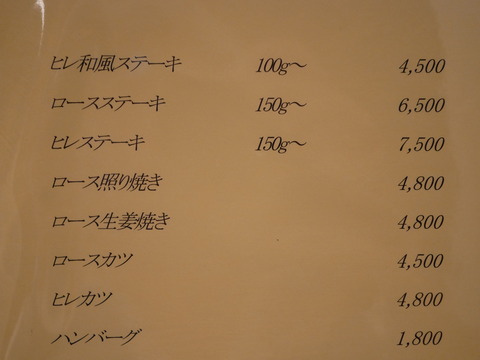 ヒレ和風ステーキ 100g～ 4,500
ロースステーキ 150g～ 6,500
ヒレステーキ 150g～ 7,500
ロース照り焼き 4,800
ロース生姜焼き 4,800
ロースカツ 4,500
ヒレカツ 4,800
ハンバーグ 1,800